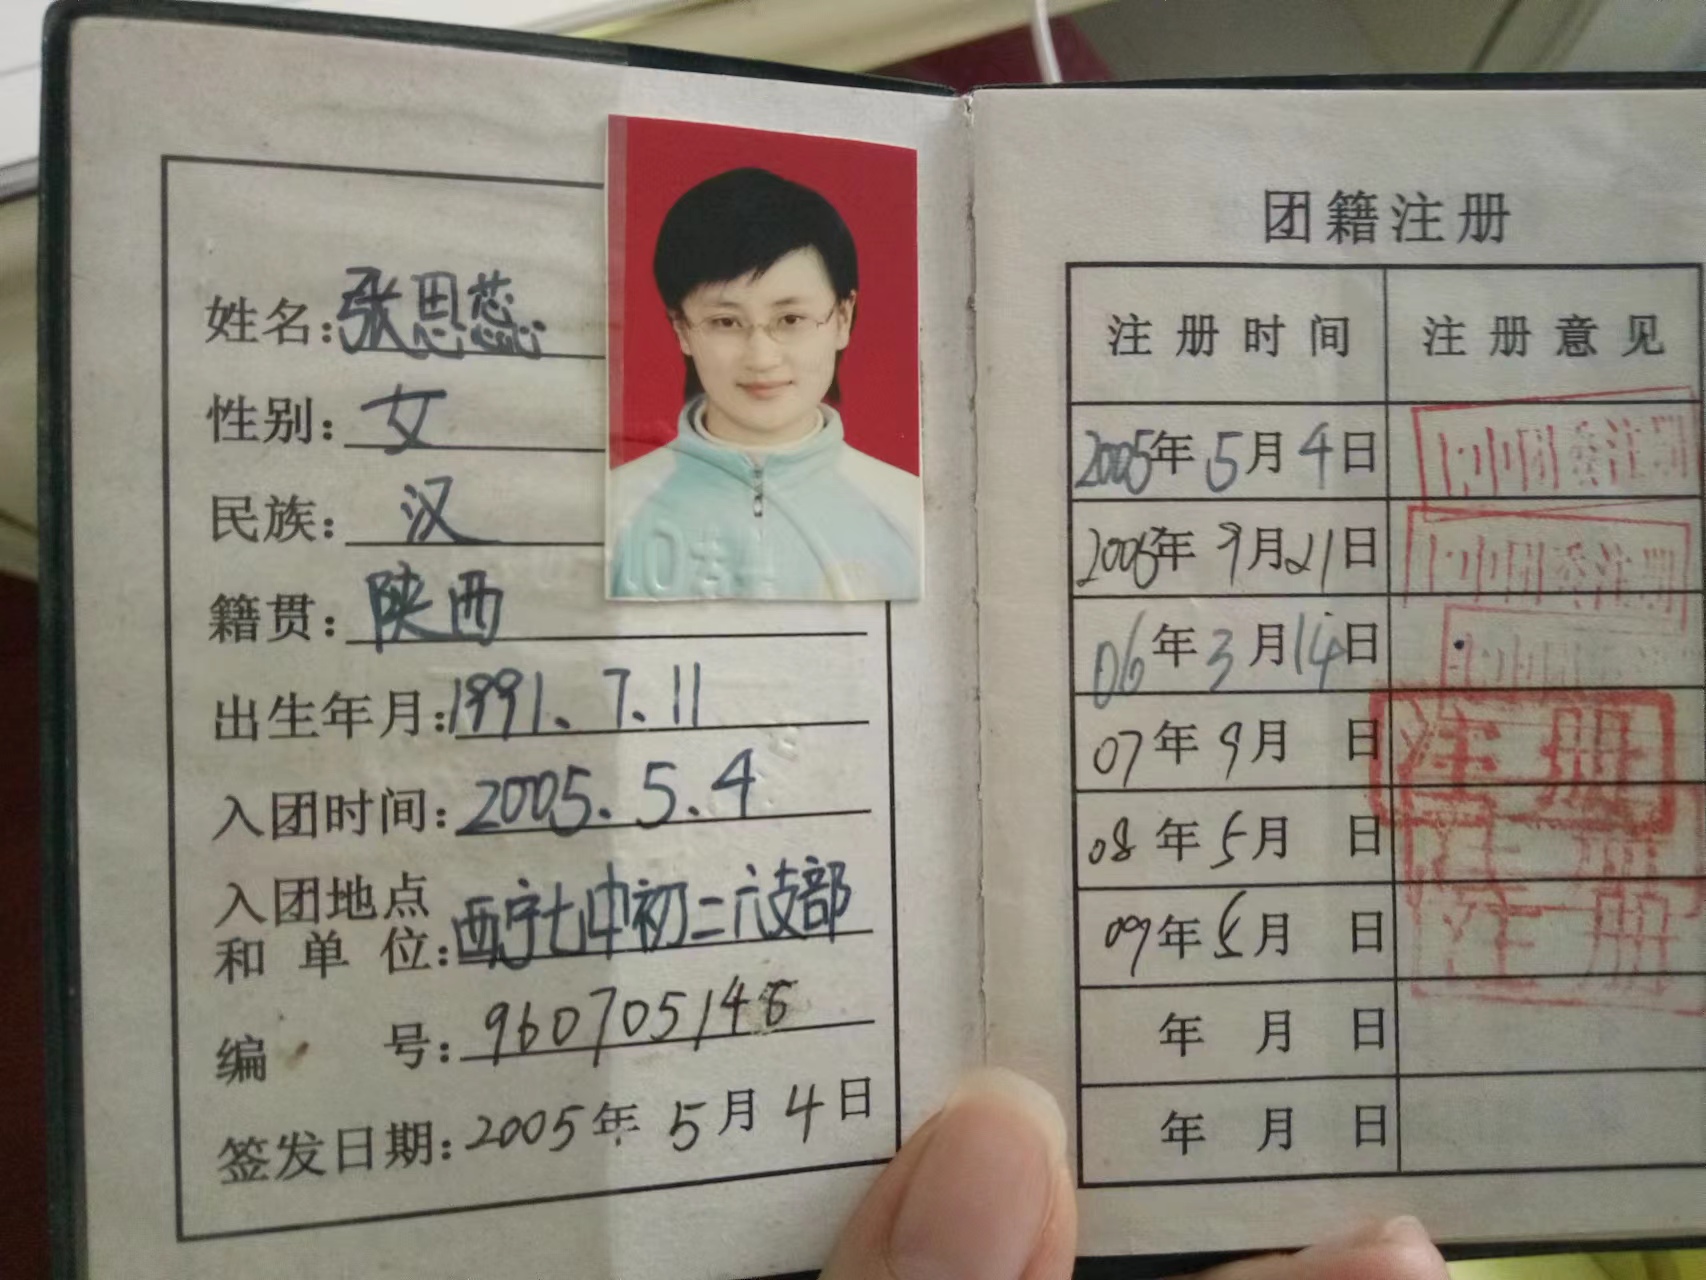 姓名:张思蕊
性别:女
民族:汉
籍贯:陕西
出生年月:1991.7.11
入团时间:2005.5.4
入团地点
和单位:西宁七中初二六支部
编号:960705148
签发日期:2005年5月4日
团籍注册
注册时间 注册意见
2005年5月4日
2005年9月21日
06年3月14日
07年9月 日 注册
08年5月 日 注册
09年5月 日 注册
年 月 日
年 月 日